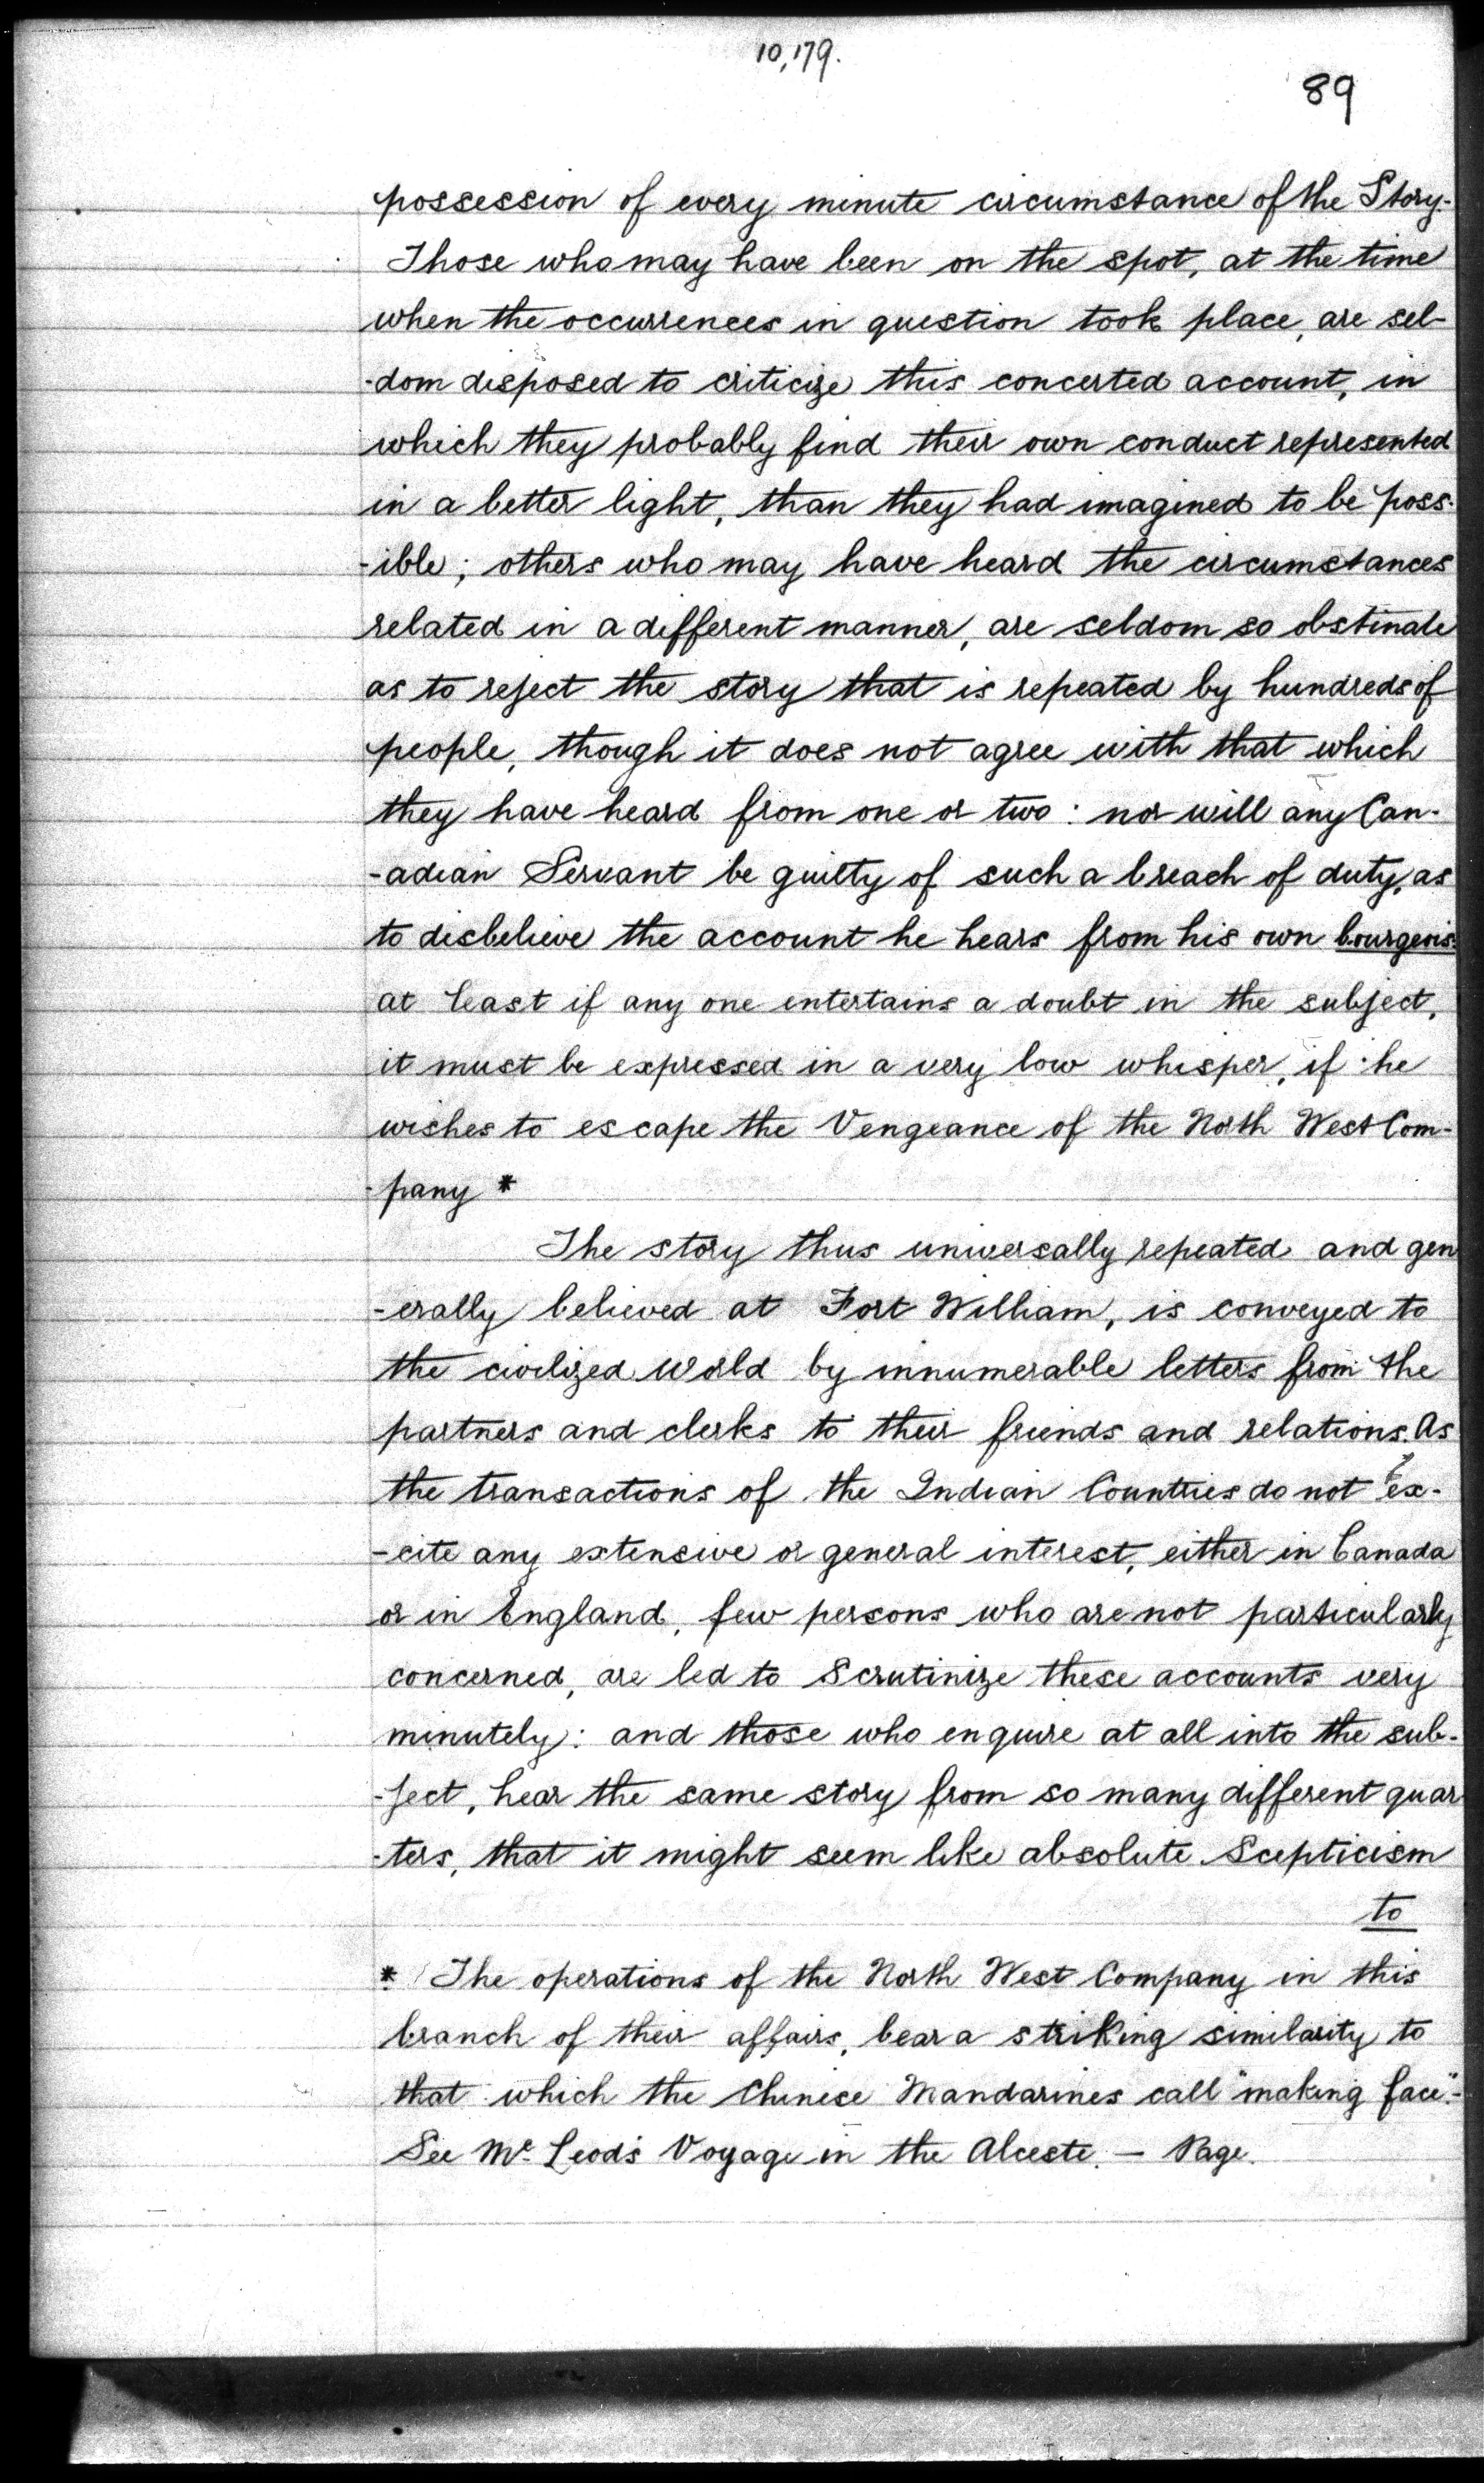 10,179.
89
possession of every minute circumstance of the Story.
Those who may have been on the spot, at the time
when the occurrences in question took place, are sel-
-dom disposed to criticize this concerted account, in
which they probably find their own conduct represented
in a better light, than they had imagined to be poss-
-ible; others who may have heard the circumstances
related in a different manner, are seldom so obstinate
as to reject the story that is repeated by hundreds of
people, though it does not agree with that which
they have heard from one or two: nor will any Can-
-adian Servant be guilty of such a breach of duty, as
to disbelieve the account he hears from his own bourgeois:
at least if any one entertains a doubt in the subject,
it must be expressed in a very low whisper, if he
wishes to escape the Vengeance of the North West Com-
-pany *
The story thus universally repeated and gen
-erally believed at Fort William, is conveyed to
the civilized World by innumerable letters from the
partners and clerks to their friends and relations. As
the transactions of the Indian Countries do not ex-
-cite any extensive or general interest, either in Canada
or in England, few persons who are not particularly
concerned, are led to Scrutinize these accounts very
minutely: and those who enquire at all into the sub-
-ject, hear the same story from so many different quar
-ters, that it might seem like absolute Scepticism
to
* The operations of the North West Company in this
branch of their affairs, bear a striking similarity to
that which the Chinese Mandarines call "making face"-
See Mc Leod's Voyage in the Alceste. — Page.